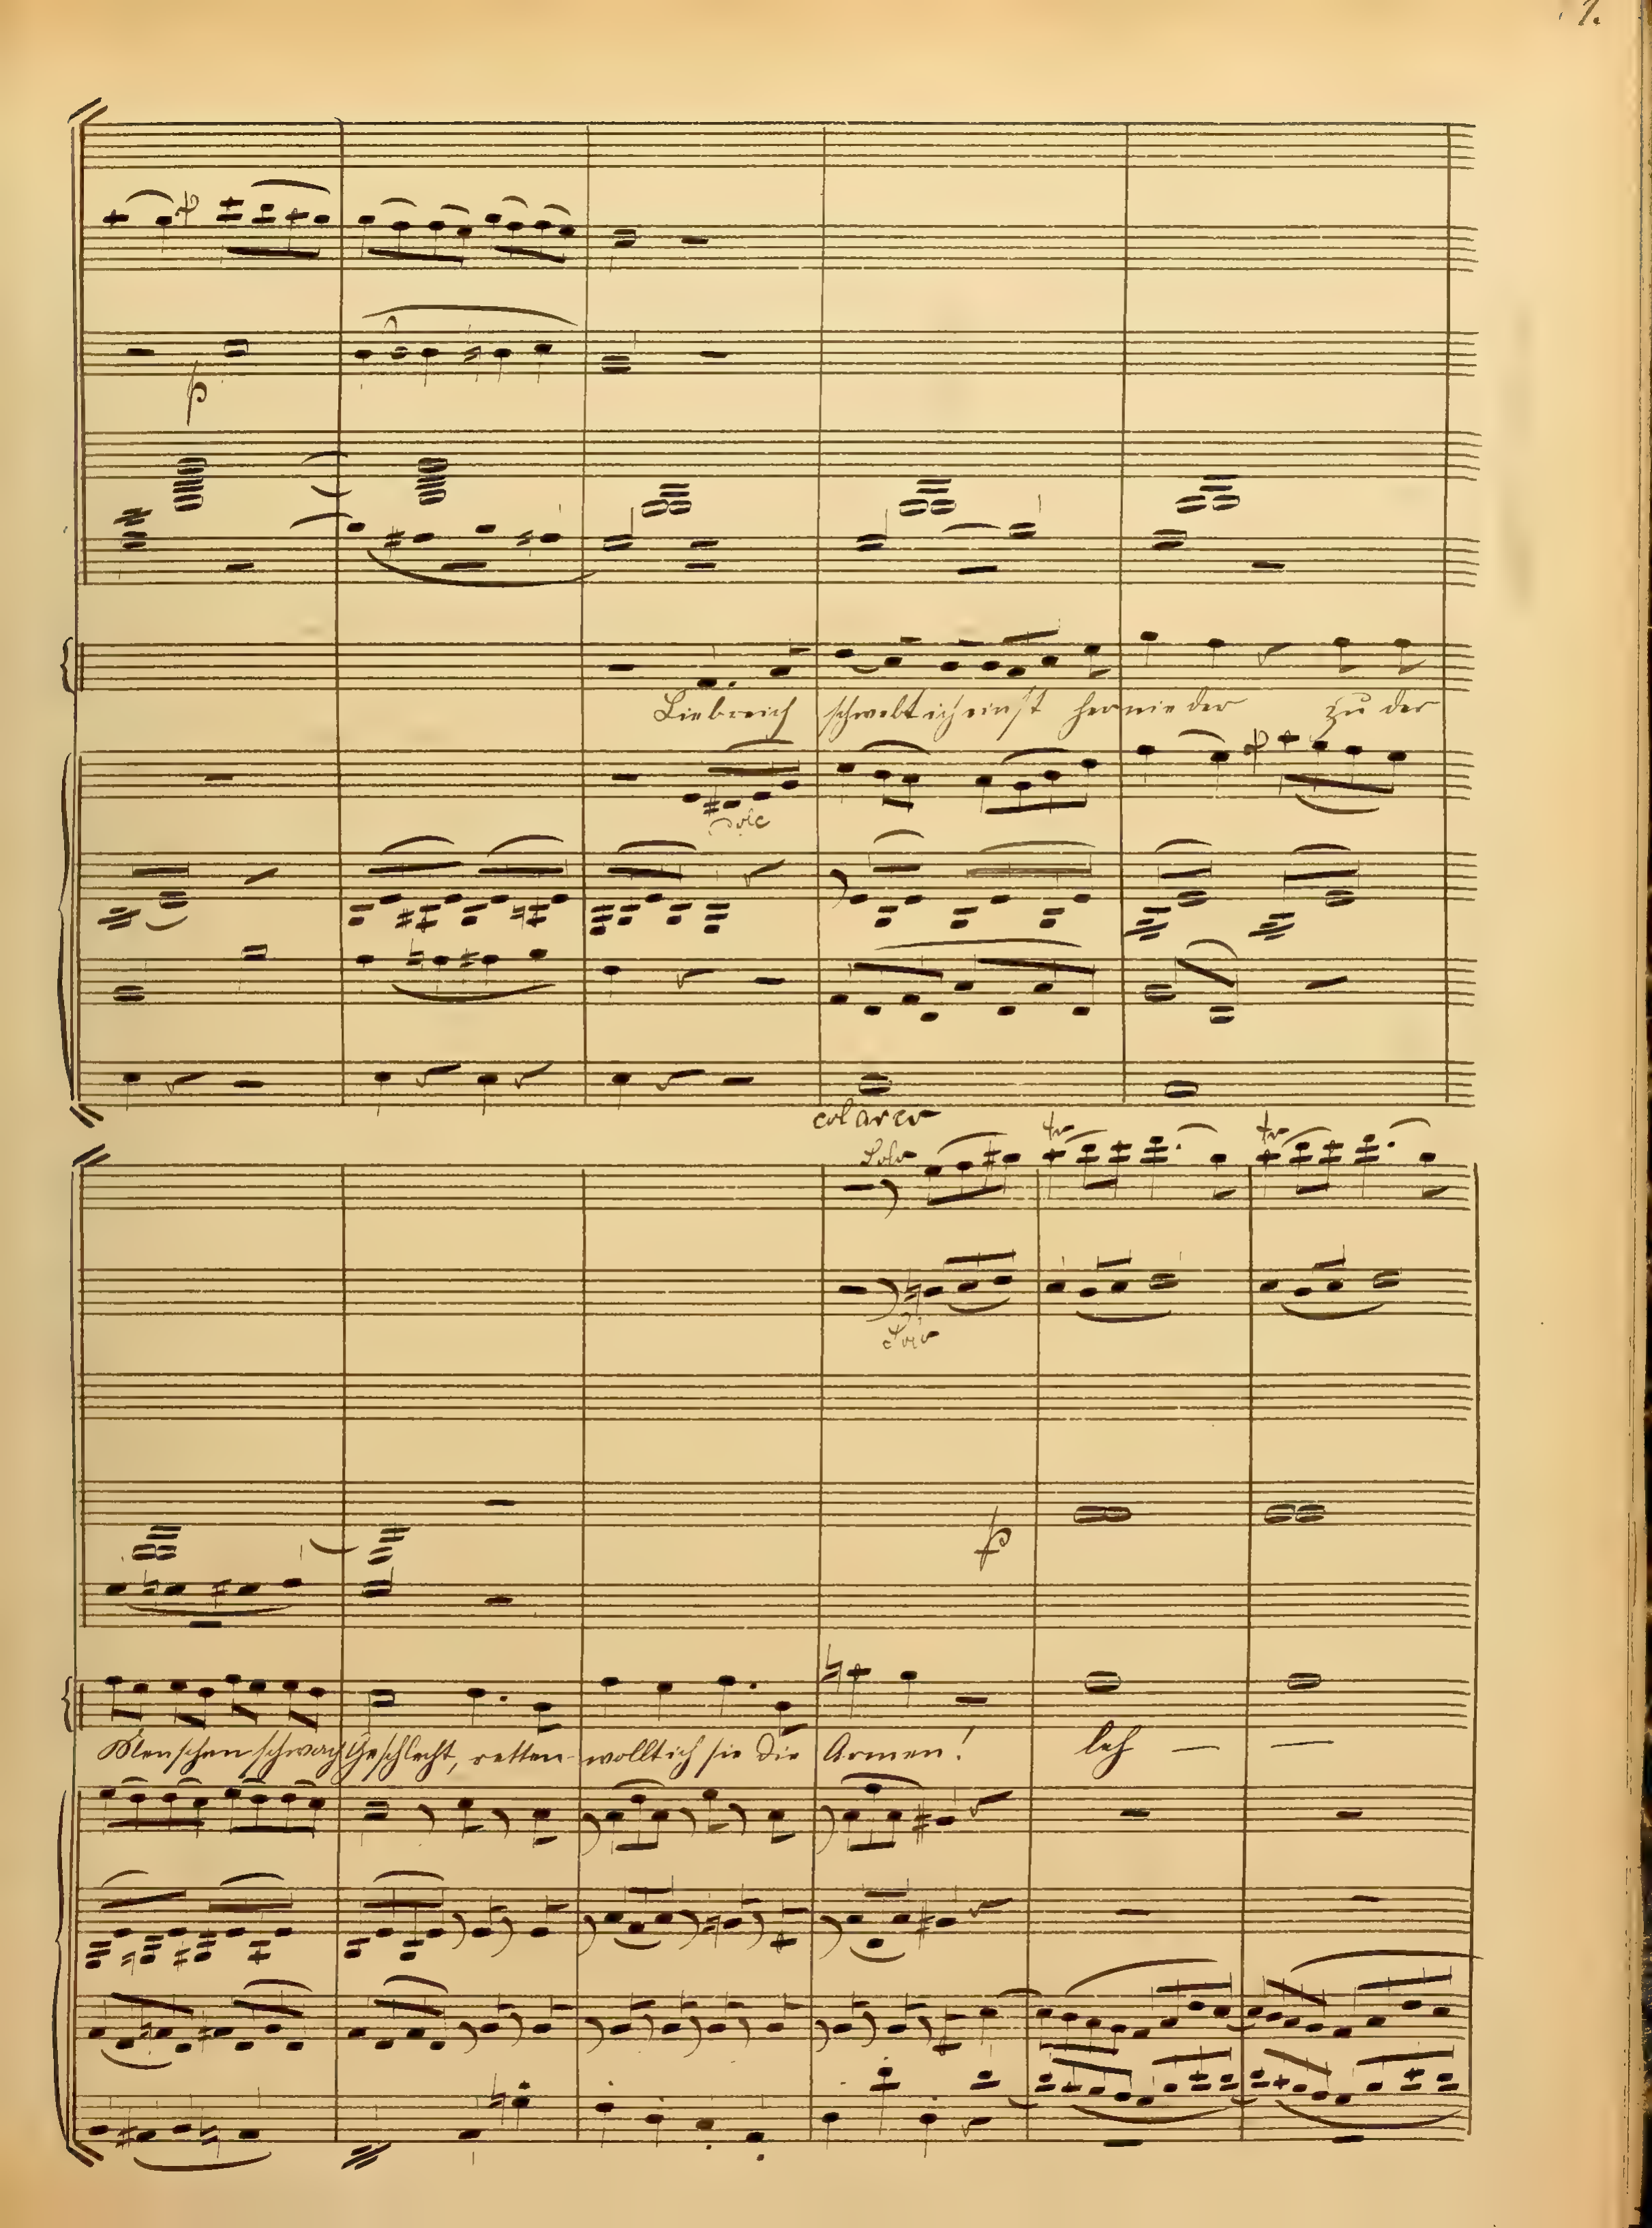 7.
p
p
Liebreich schwebt ich einst hernieder zu der
p
dolc
col arco
Solo tr tr
Solo
p
Menschen schwach Geschlecht, retten wollt ich sie die Armen! leh — —